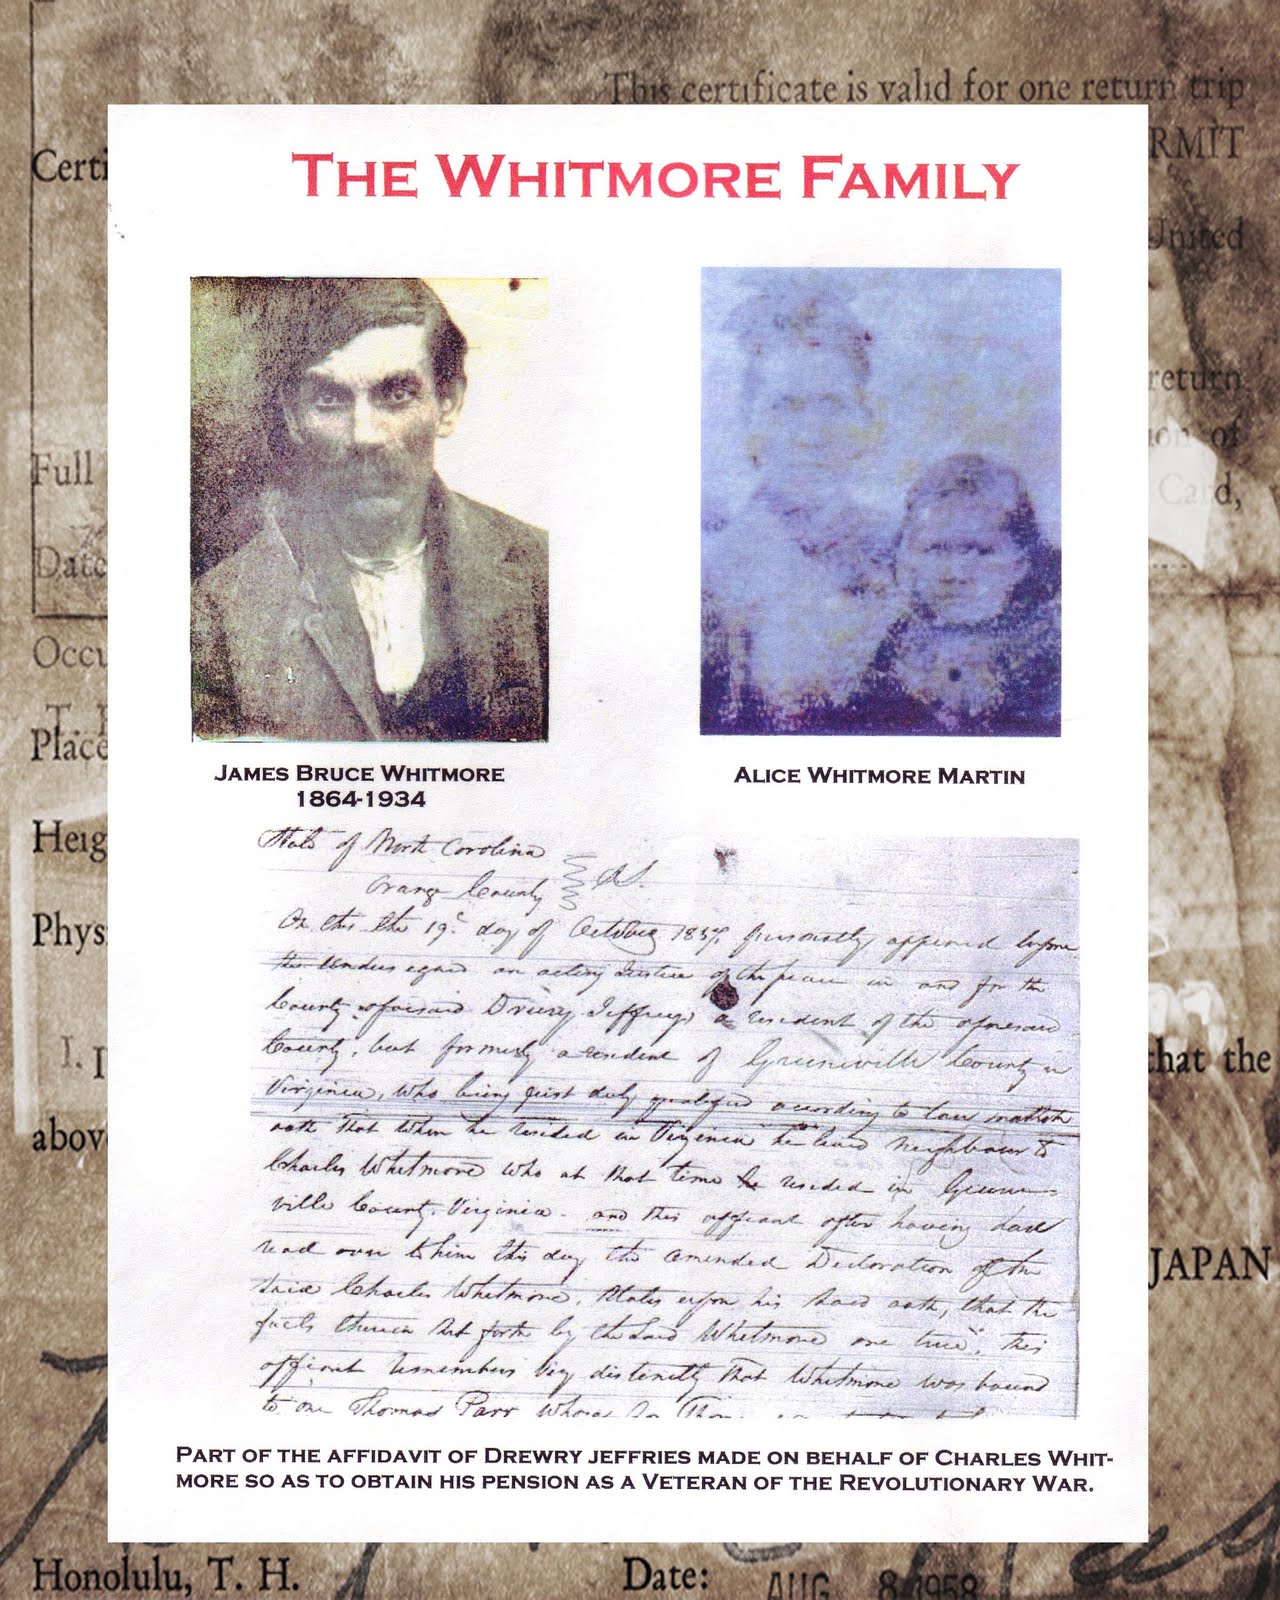 This certificate is valid for one return trip
RMIT
Certi
United
THE WHITMORE FAMILY
return
of
Card,
Full
Date
Occu
Place
JAMES BRUCE WHITMORE
1864-1934
ALICE WHITMORE MARTIN
Heig
Phys
State of North Carolina
Orange County
On this the 19th day of October 1837 personally appeared before
the undersigned an acting Justice of the peace in and for the
County aforesaid Drury Jeffreys a resident of the aforesaid
County, but formerly a resident of Greensville County in
Virginia, who being first duly qualified according to law maketh
oath that when he resided in Virginia he lived neighbour to
Charles Whitmore who at that time resided in Greens=
ville County, Virginia - and this affiant after having had
read over to him this day the amended Declaration of the
said Charles Whitmore, States upon his said oath, that the
facts therein Set forth by the said Whitmore are true, this
affiant remembers very distinctly that Whitmore was bound
to one Thomas Parr
I.
that the
abov
JAPAN
PART OF THE AFFIDAVIT OF DREWRY JEFFRIES MADE ON BEHALF OF CHARLES WHIT-
MORE SO AS TO OBTAIN HIS PENSION AS A VETERAN OF THE REVOLUTIONARY WAR.
Honolulu, T. H.
Date: AUG 8 1958